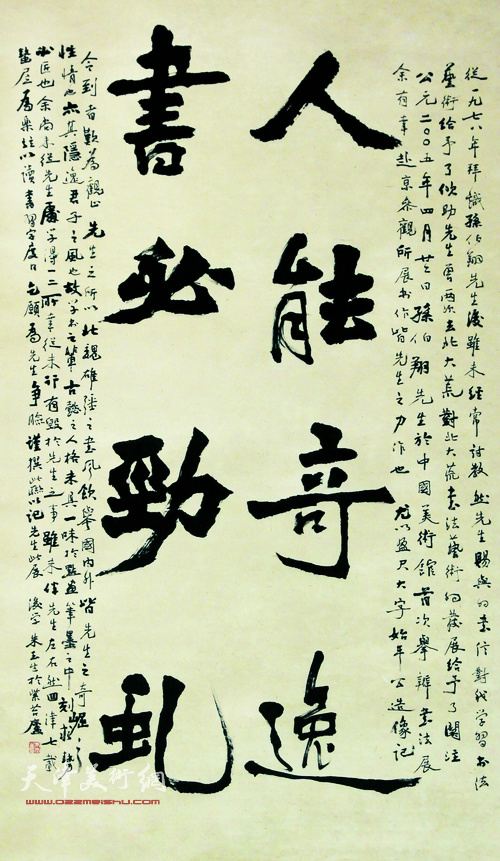 人能奇逸
書必勁虬
從一九七八年拜識孫伯翔先生後雖未經常討教然先生賜與的書信對我學習書法
藝術給予了傾助先生曾兩次去北大荒對北大荒書法藝術的發展給予了關注
公元二〇〇五年四月廿三日孫伯翔先生於中國美術館首次舉辦書法展
余有幸赴京參觀所展書作皆先生之力作也尤以盈尺大字始平公造像記
令到者歎為觀止先生之所以此魏雄強之書風飲譽國內外皆先生之奇
性情也亦其隱逸君子之風也故學書之人格未具一味於點畫筆墨之中刻
匠也余尚未從先生處學得一二所幸從未行有毀於先生之事雖未伴先生左右然四津七載
為樂註以讀書習字度日乞願為先生爭臉謹撰此聯以記先生此展後學朱玉生於紫苔廬
天中美術網
www.ozzmeishu.com